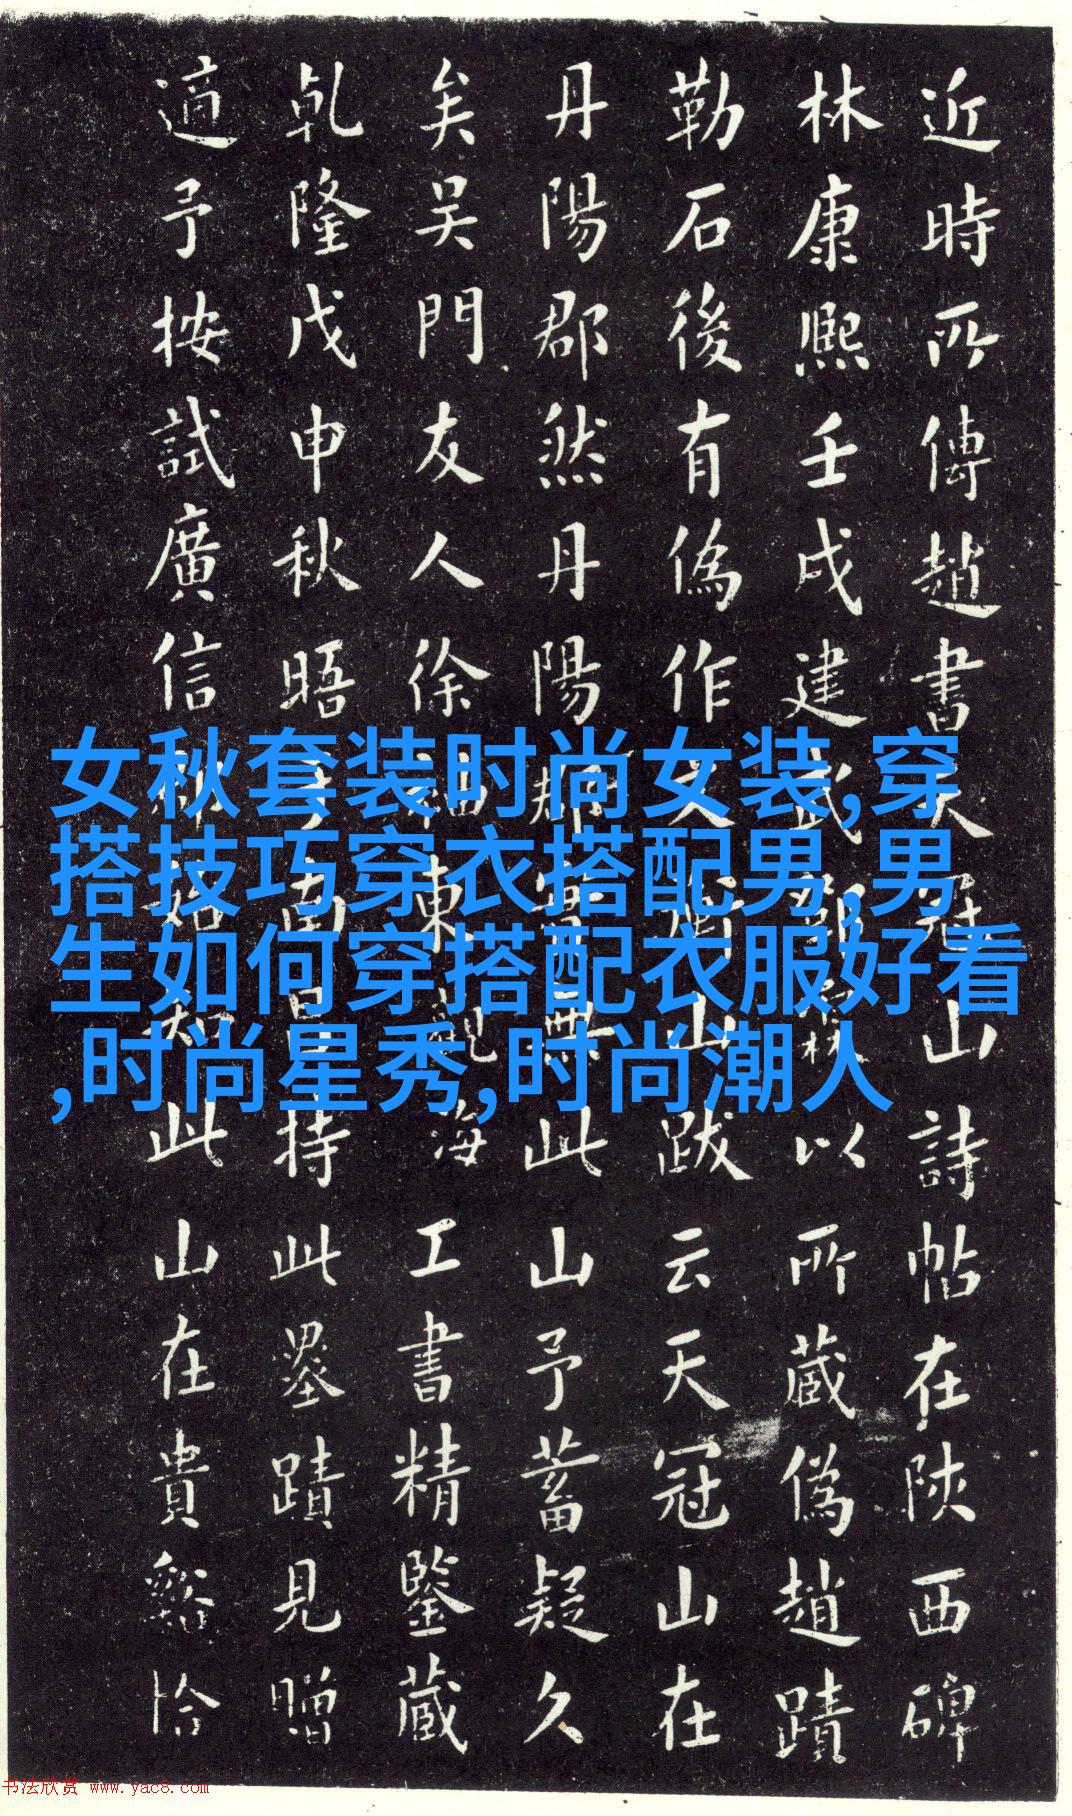 近時所傳趙書天冠山詩帖在陝西碑
林康熙壬戌建武郭以所藏偽趙蹟
勒石後有偽作文山跋云天冠山在
丹陽郡然丹陽郡實無此山予蓄疑久
矣吳門友人徐東觀海工書精鑒藏
乾隆戊申秋晤于南昌持此墨蹟見贈
適予按試廣信郡始知此山在貴谿恰
女秋套装时尚女装,穿
搭技巧穿衣搭配男,男
生如何穿搭配衣服好看
,时尚星秀,时尚潮人
书法欣赏 www.yac8.com